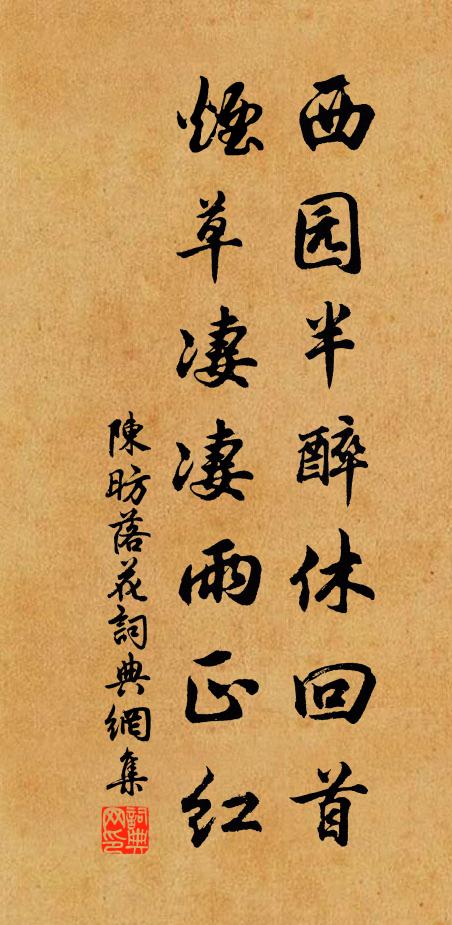 西园半醉休回首
煙草凄凄雨正红
陳昉落花詞典網集
詞典网印